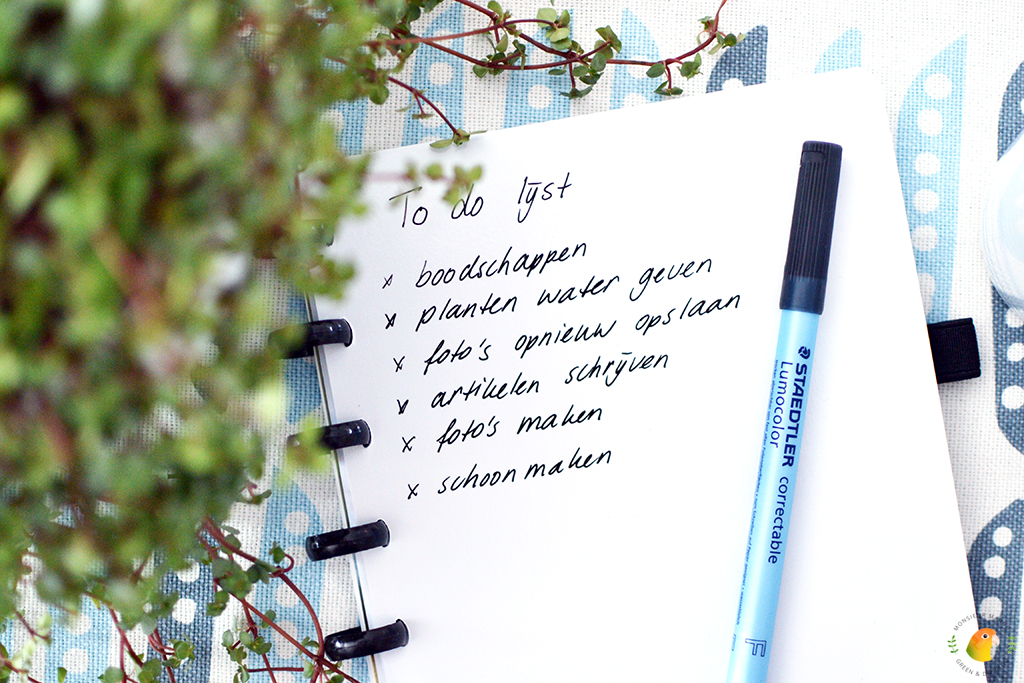 To do lijst
x boodschappen
x planten water geven
x foto's opnieuw opslaan
x artikelen schrijven
x foto's maken
x schoonmaken
STAEDTLER
Lumocolor correctable
F
GREEN &